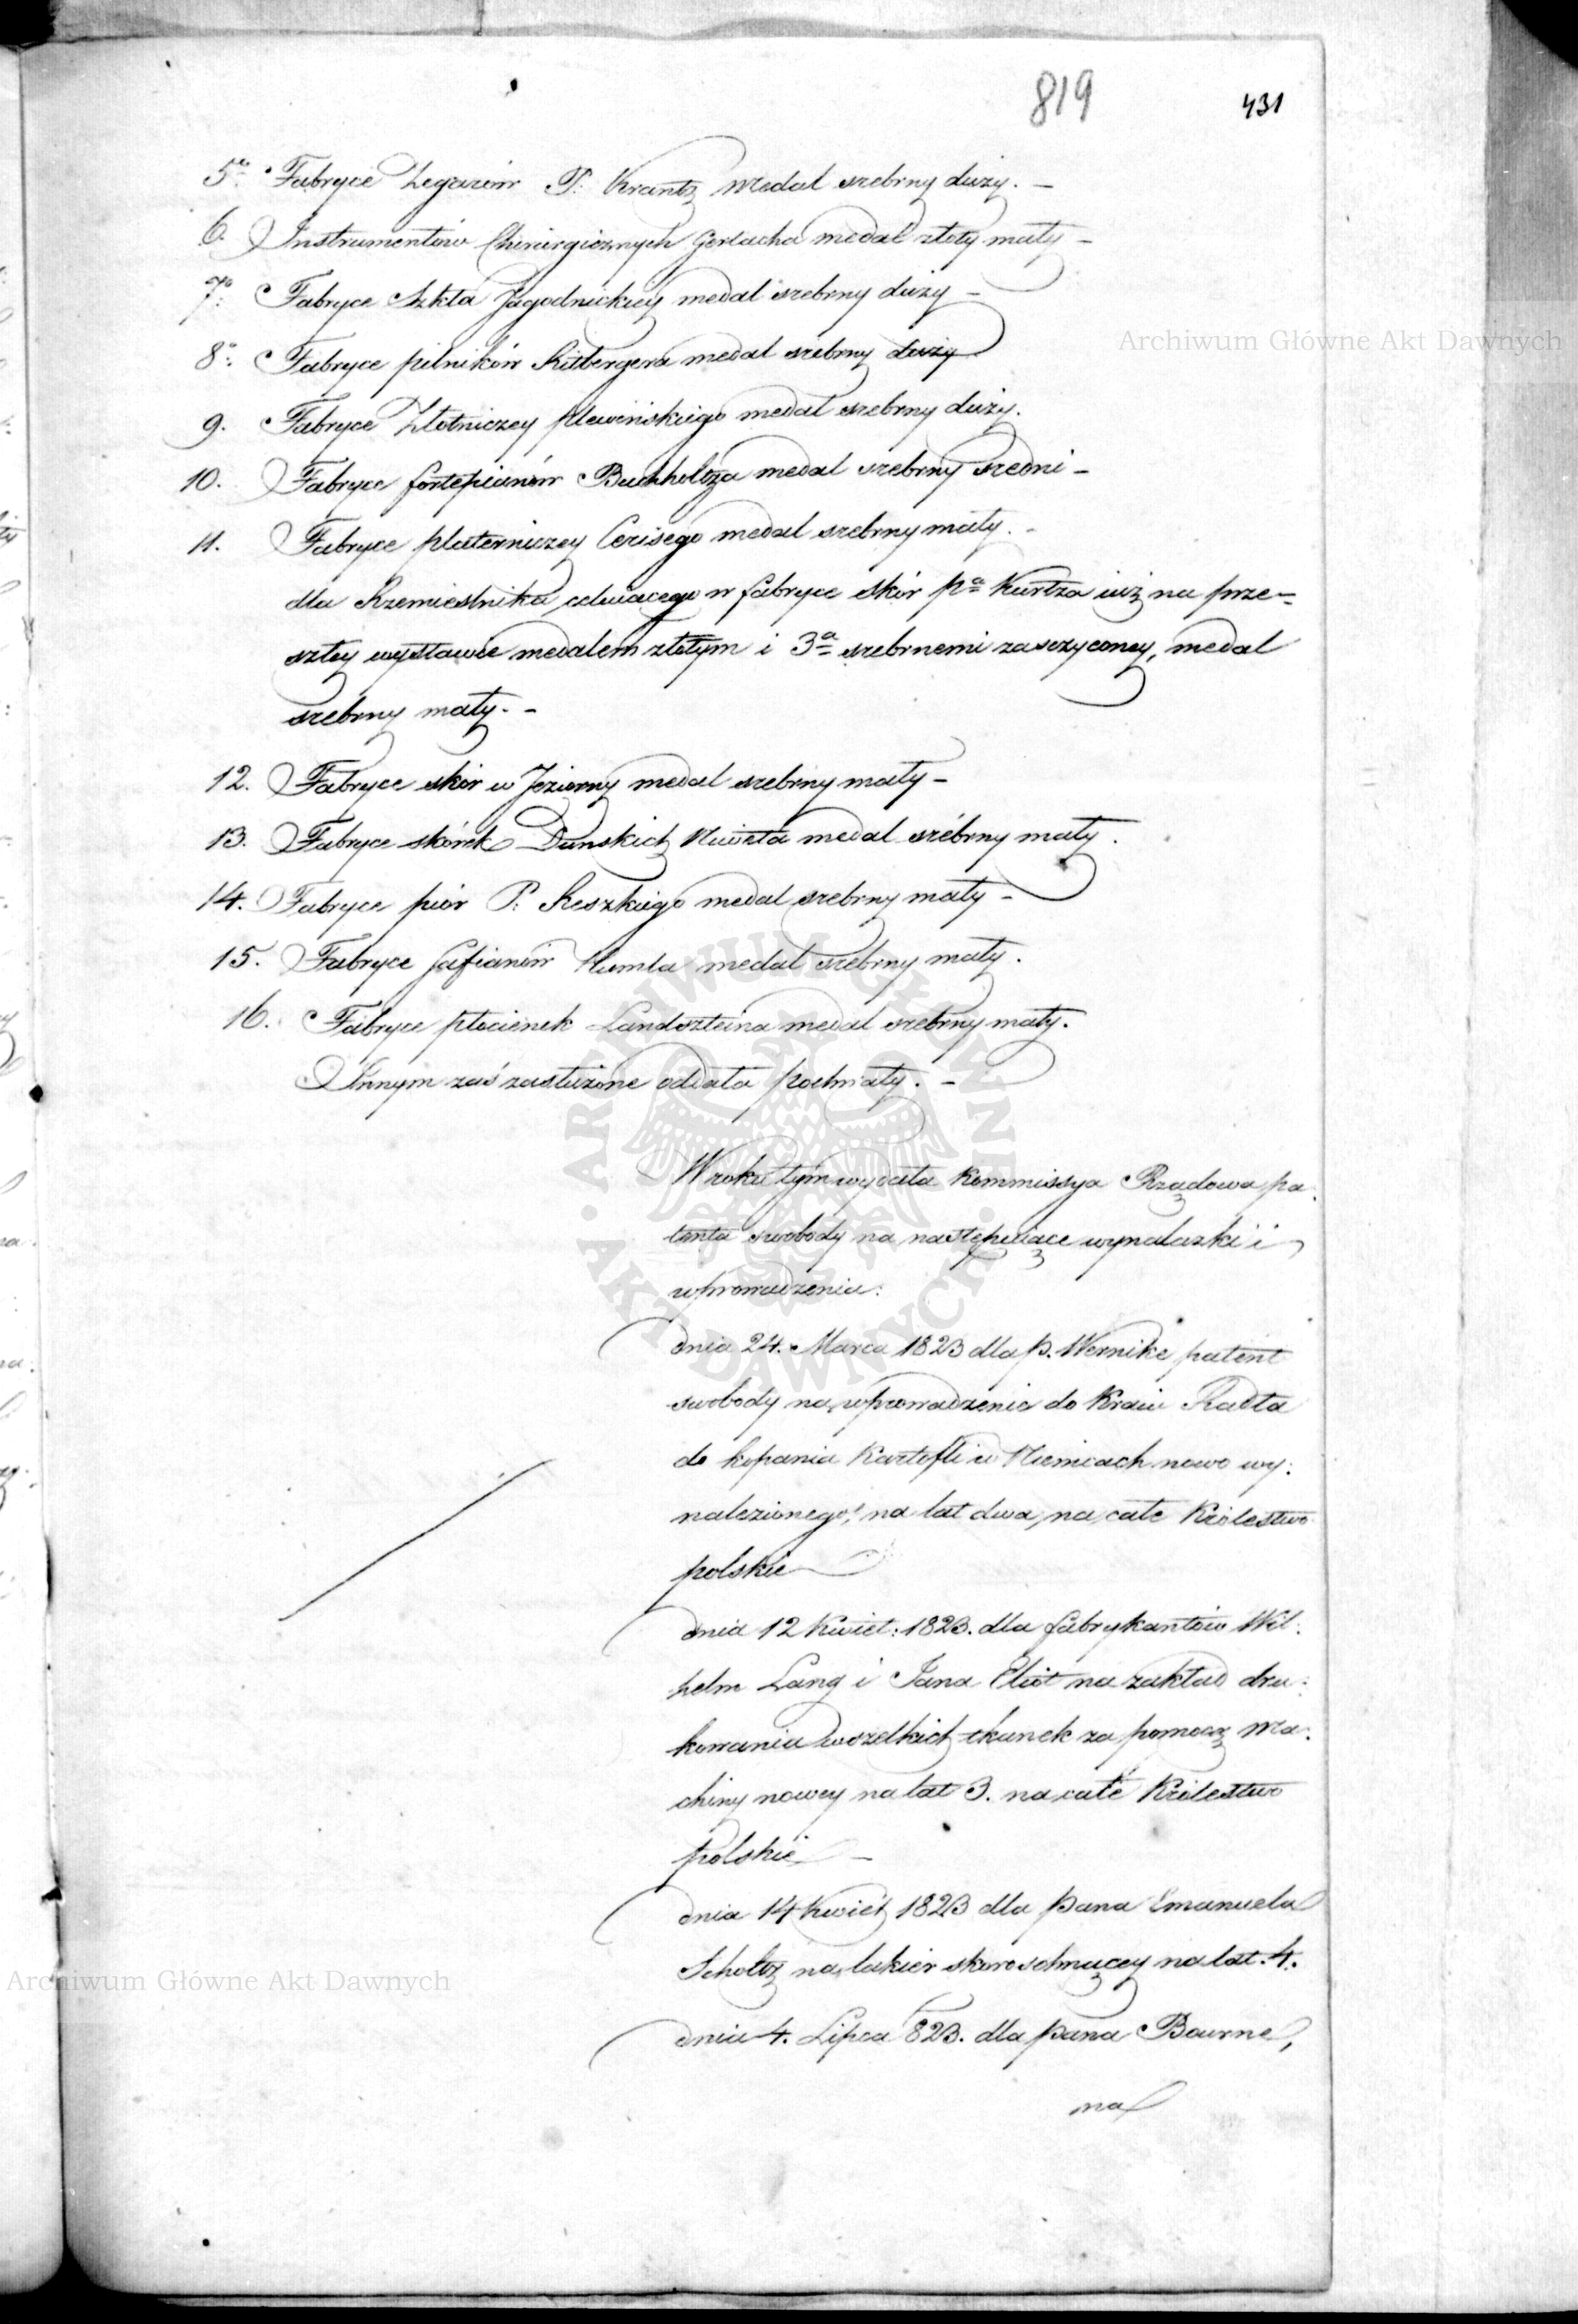 819
431
5º Fabryce Zegarów P. Krantz medal srebrny duży. —
6. Instrumentów Chirurgicznych Gerlacha medal złoty mały —
7º Fabryce Szkła Jagodnickiey medal srebrny duży —
8º Fabryce pilników Ritbergera medal srebrny duży
9. Fabryce Złotniczey Plewińskiego medal srebrny duży.
10. Fabryce fortepianów Buchholtza medal srebrny średni —
11. Fabryce platerniczey Cerisego medal srebrny mały. —
dla Rzemieslnika celuiacego w fabryce skór pª Kurtza iuż na prze=
szłey wystawie medalem złotym i 3ª srebrnemi zasczyconey, medal
srebrny mały. —
12. Fabryce skór w Jeziorny medal srebrny mały —
13. Fabryce skórek Dunskich medal srébrny mały.
14. Fabryce piór P. Reszkiego medal srebrny mały —
15. Fabryce Safianów Kumla medal srebrny mały.
16. Fabryce płocienek Landszteina medal srebrny mały.
Innym zaś zasłużone oddała pochwały. —
W roku tym wydała Kommissya Rządowa pa:
tenta swobody na następuiące wynalazki i
wprowadzenia:
dnia 24. Marca 1823 dla P. Wernike patent
swobody na wprowadzenie do Kraiu Radła
do kopania Kartofli w Niemcach nowo wy:
nalezionego, na lat dwa, na całe Królestwo
polskie
dnia 12 Kwiet: 1823. dla fabrykantów Wil:
helm Lang i Jana Eliot na zakład dru:
kowania wszelkich tkanek za pomocą Ma:
chiny nowey na lat 3. na całe Królestwo
Polskie —
dnia 14 Kwiet 1823 dla Pana Emanuela
Scholtz na lakier skoro schnącey na lat. 4.
dnia 4. Lipca 823. dla Pana Bourne,
na
Archiwum Główne Akt Dawnych
Archiwum Główne Akt Dawnych
· ARCHIWUM GŁÓWNE · AKT DAWNYCH